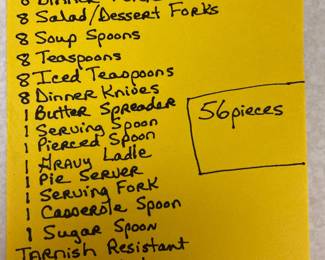 8 Dinner Forks
8 Salad/Dessert Forks
8 Soup Spoons
8 Teaspoons
8 Iced Teaspoons
8 Dinner Knives
1 Butter Spreader
1 Serving Spoon
1 Pierced Spoon
1 Gravy Ladle
1 Pie Server
1 Serving Fork
1 Casserole Spoon
1 Sugar Spoon
TARNish Resistant
56 pieces